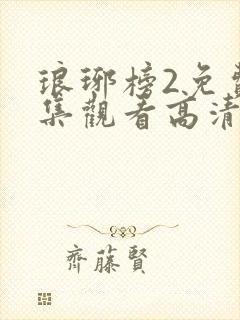 琅琊榜2免費
集觀看高清
齊藤賢